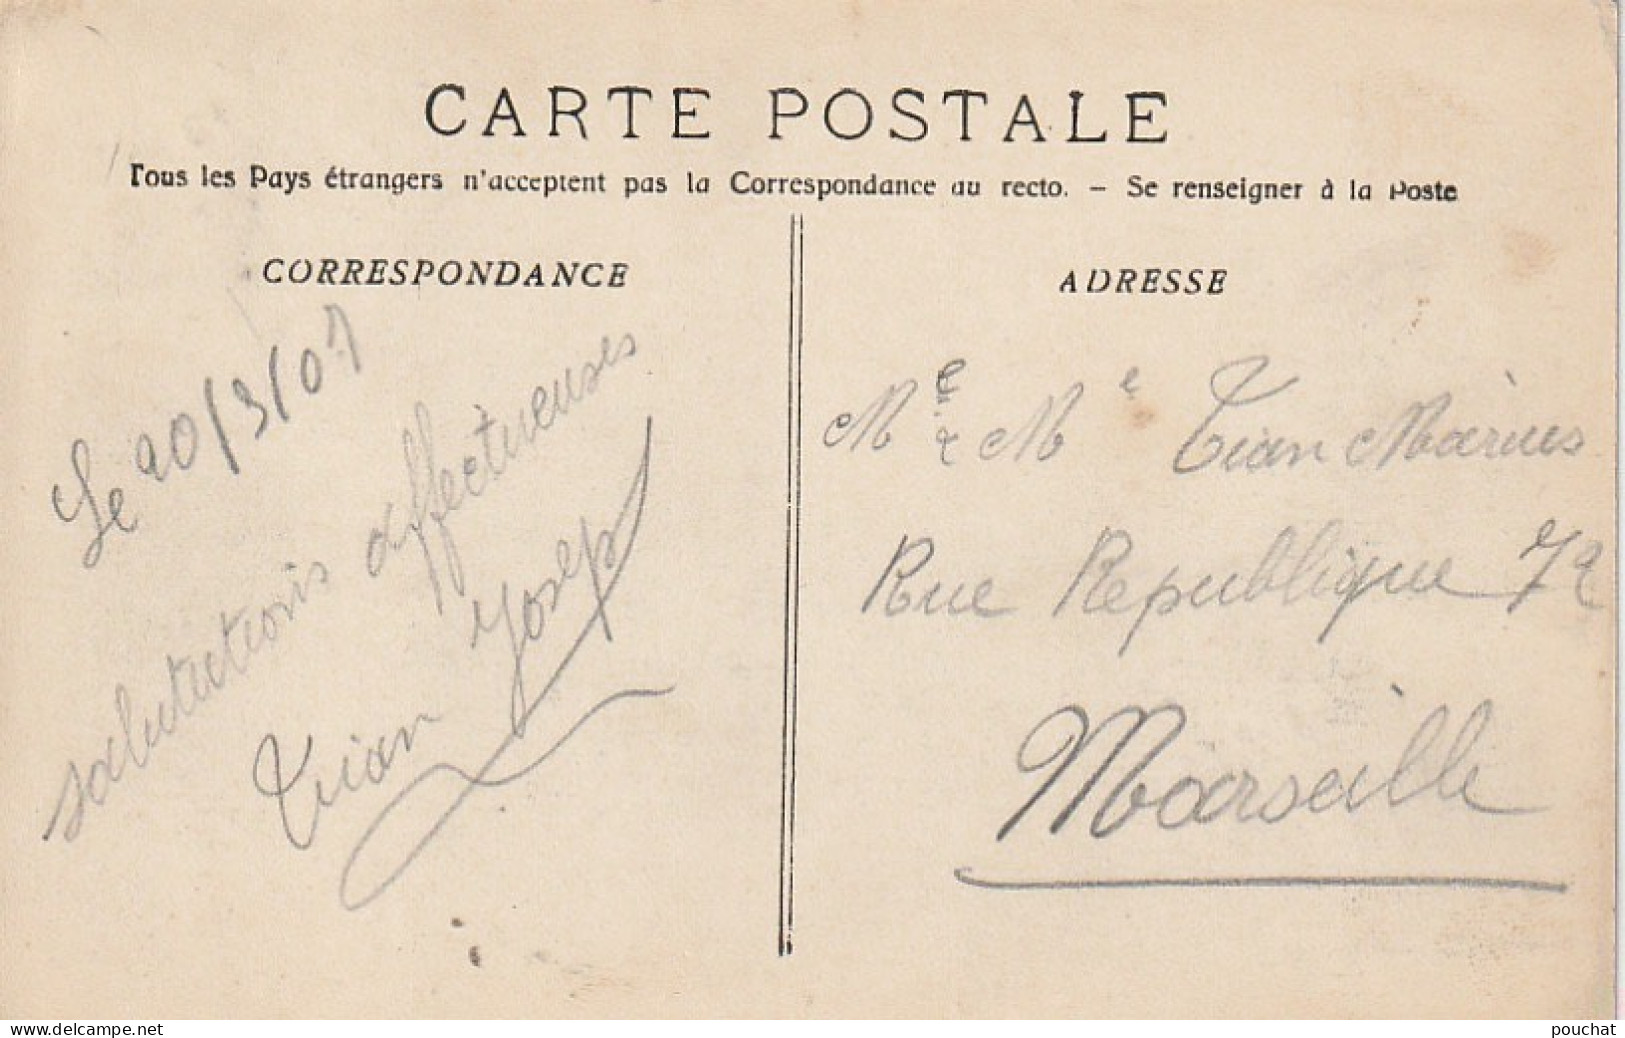 CARTE POSTALE
Tous les Pays étrangers n'acceptent pas la Correspondance au recto. – Se renseigner à la Poste
CORRESPONDANCE
Le 20/3/07
salutations affectueuses
Tian Joseph
ADRESSE
Mr & Me Tian Marius
Rue Republique 72
Marseille
www.delcampe.net
pouchat